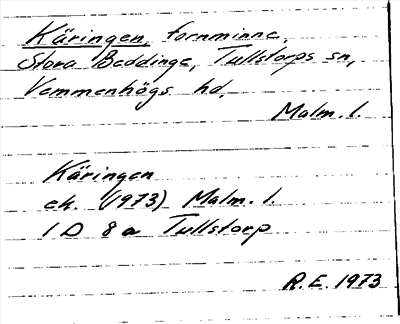 Käringen, fornminne,
Stora Beddinge, Tullstorps sn,
Vemmenhögs hd,
Malm. l.
Käringen
ek. (1973) Malm. l.
1 D 8 a Tullstorp
R.E. 1973